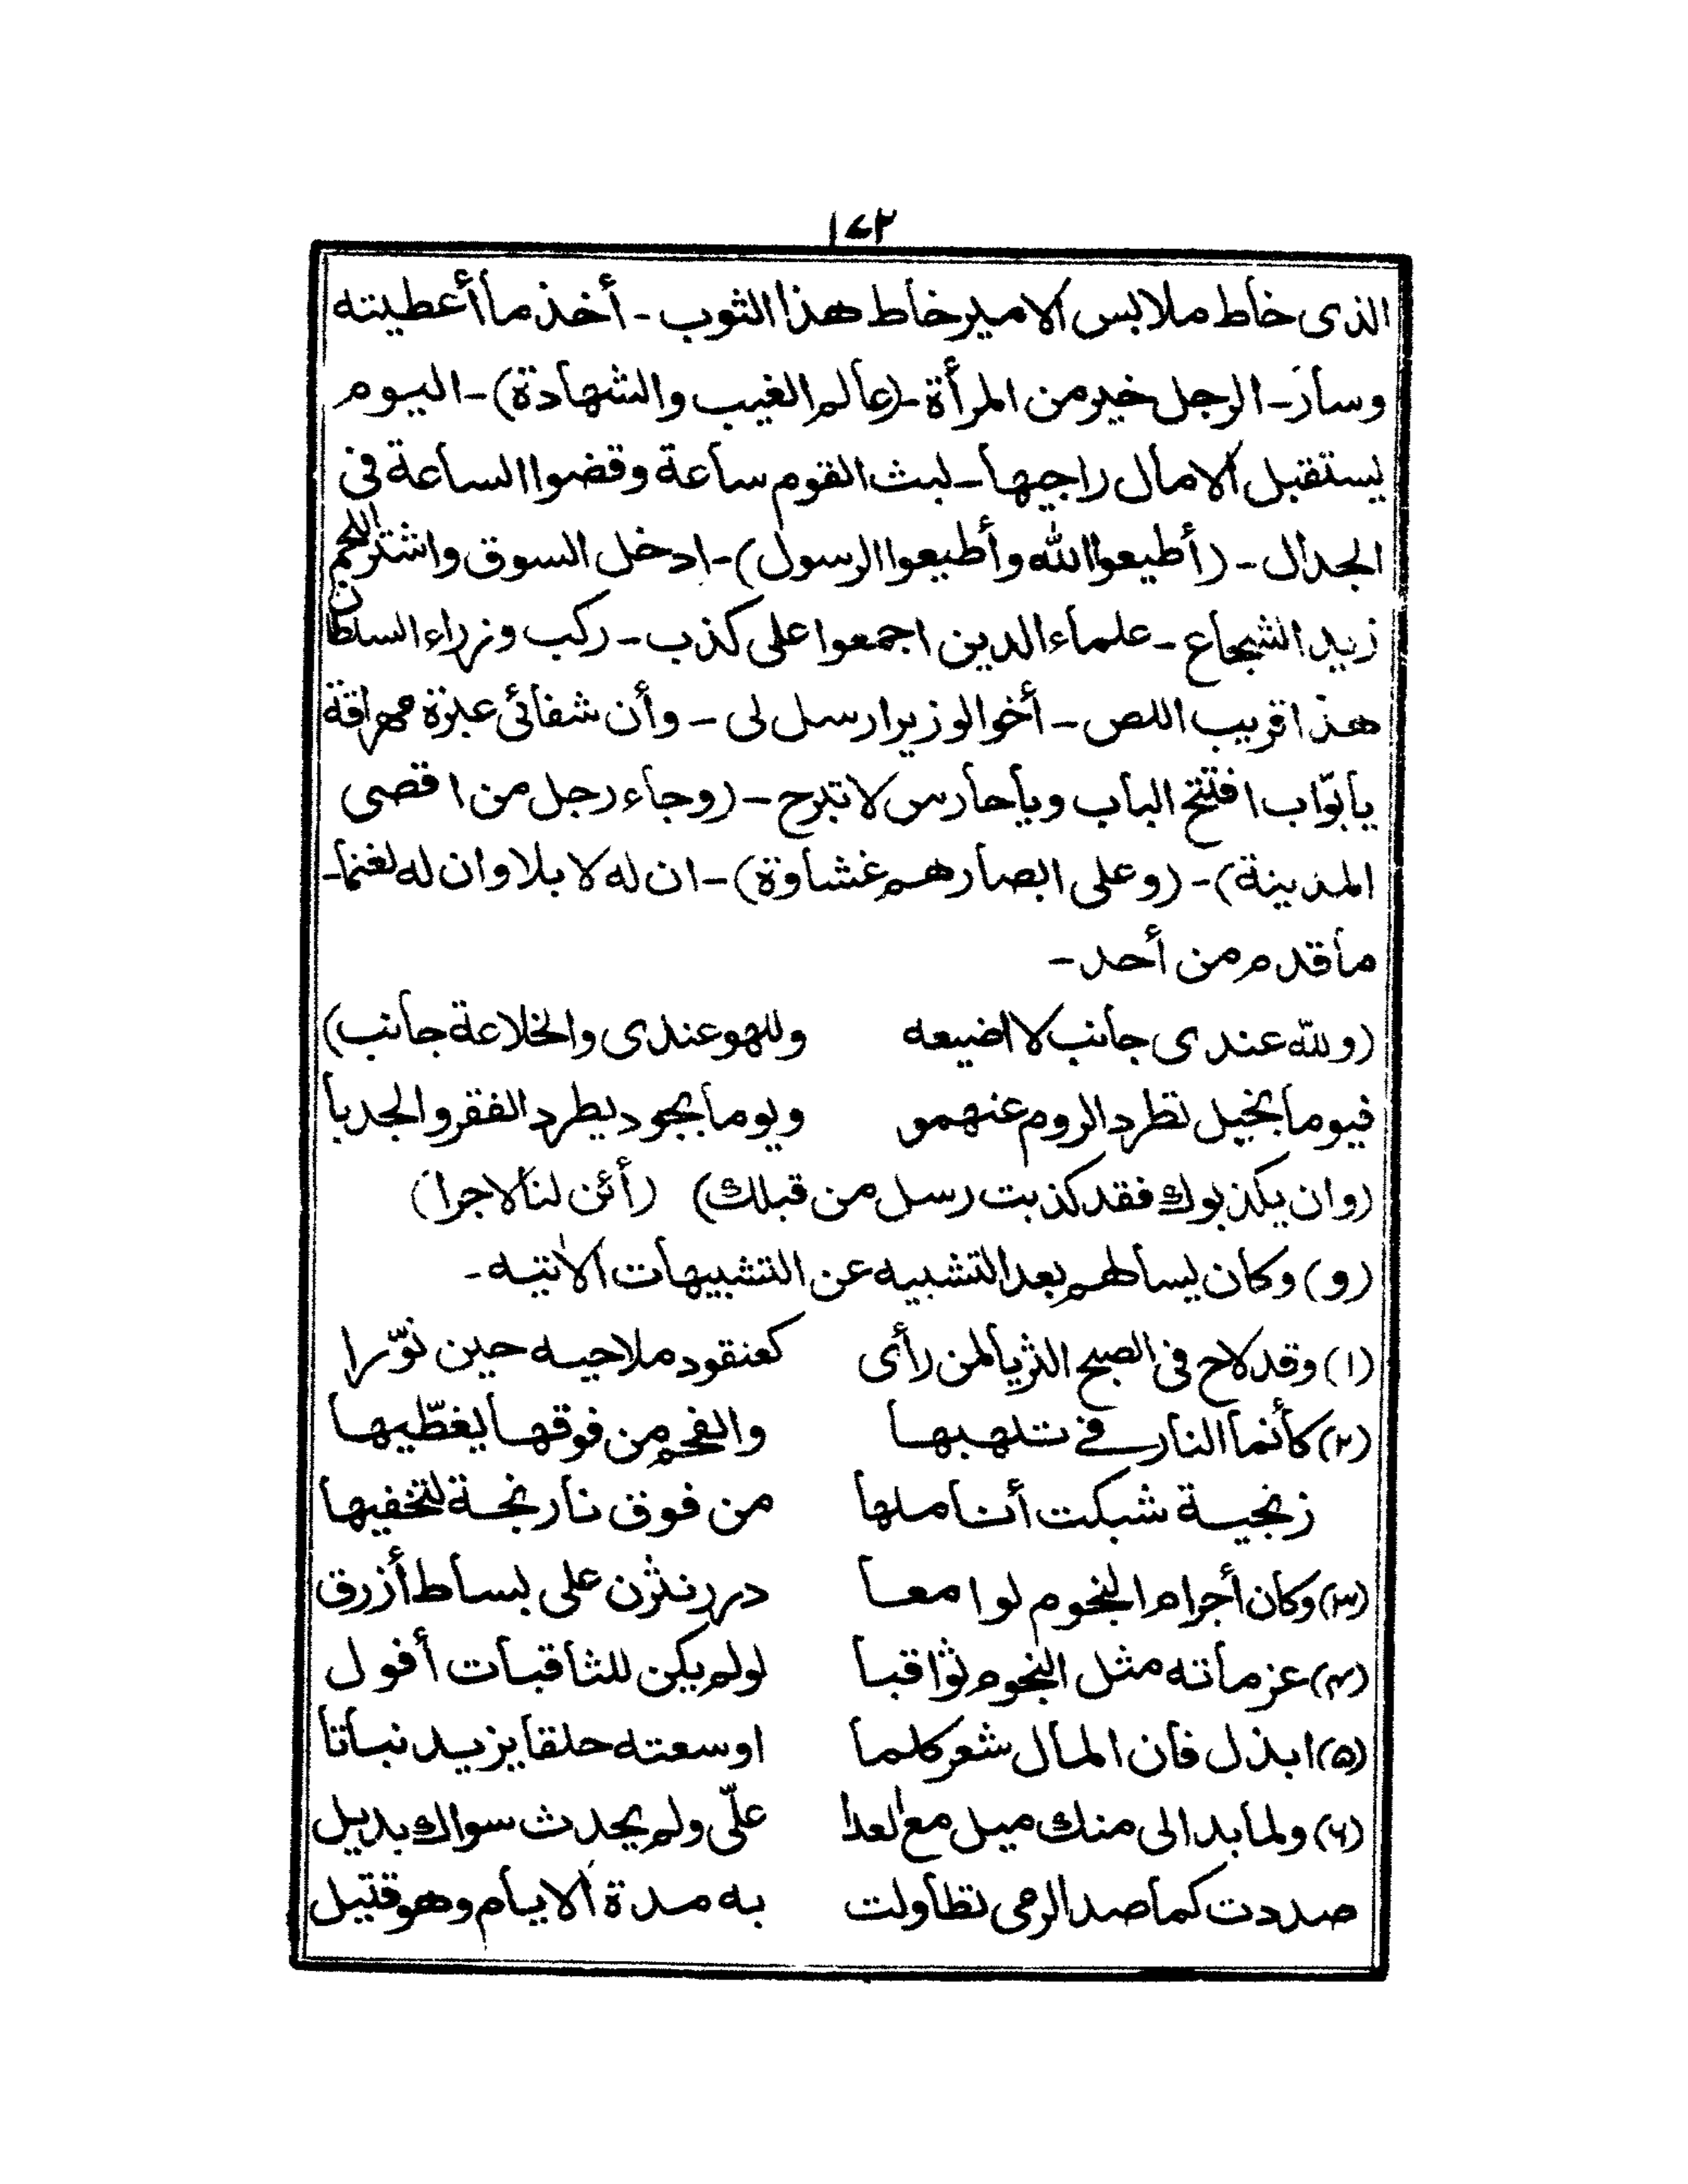 ١٧٢
الذى خاط ملابس الامير خاط هذا الثوب - أخذ ما أعطيته
وسار - الرجل خير من المرأة - (عالم الغيب والشهادة) - اليوم
يستقبل الآمال راجيها - لبث القوم ساعة وقضوا الساعة فى
الجدال - (أطيعوا الله وأطيعوا الرسول) - ادخل السوق واشتر اللحم
زيد الشجاع - علماء الدين اجمعوا على كذب - ركب وزراء السلطان
هذا قريب اللص - أخو الوزير ارسل لى - وأن شفائى عبرة مهراقة
يا بوّاب افتح الباب ويا حارس لا تبرح - (وجاء رجل من اقصى
المدينة) - (وعلى ابصارهم غشاوة) - ان له لابلا وان له لغنما -
ما قدم من أحد -
(ولله عندى جانب لا اضيعه وللهو عندى والخلاعة جانب)
فيوما بخيل تطرد الروم عنهمو ويوما بجود يطرد الفقر والجدبا
(وان يكذبوك فقد كذبت رسل من قبلك) (أئن لنا لاجرا)
(و) وكان يسألهم بعد التشبيه عن التشبيهات الآتيه -
(١) وقد لاح فى الصبح الثريا لمن رأى كعنقود ملاحيه حين نوّرا
(٢) كأنما النار فى تلهبها والفحم من فوقها يغطّيها
زنجية شبكت أناملها من فوق نارنجة لتخفيها
(٣) وكان أجرام النجوم لوامعا درر نثرن على بساط أزرق
(٤) عزماته مثل النجوم ثواقبا لو لم يكن للثاقبات أفول
(٥) ابذل فان المال شعر كلما اوسعته حلقا يزيد نباتا
(٦) ولما بدا لى منك ميل مع العدا علىّ ولم يحدث سواك بديل
صددت كما صد الرمى تطاولت به مدة الايام وهو قتيل